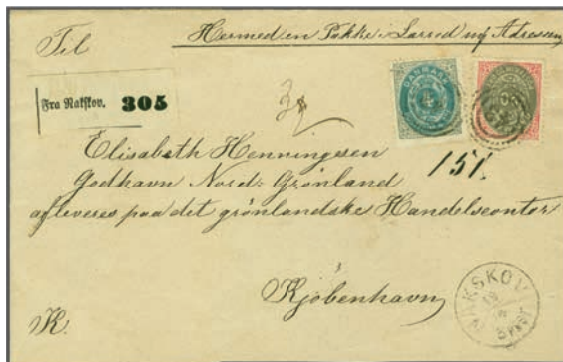 Til
Hermed en Pakke i Lærred mrk Adressen
Fra Nakskov. 305
DANMARK
Elisabeth Henningsen
Godhavn Nord: Grönland
afleveres paa det grönlandske Handelscontor
Kjöbenhavn
K.
NAKSKOV